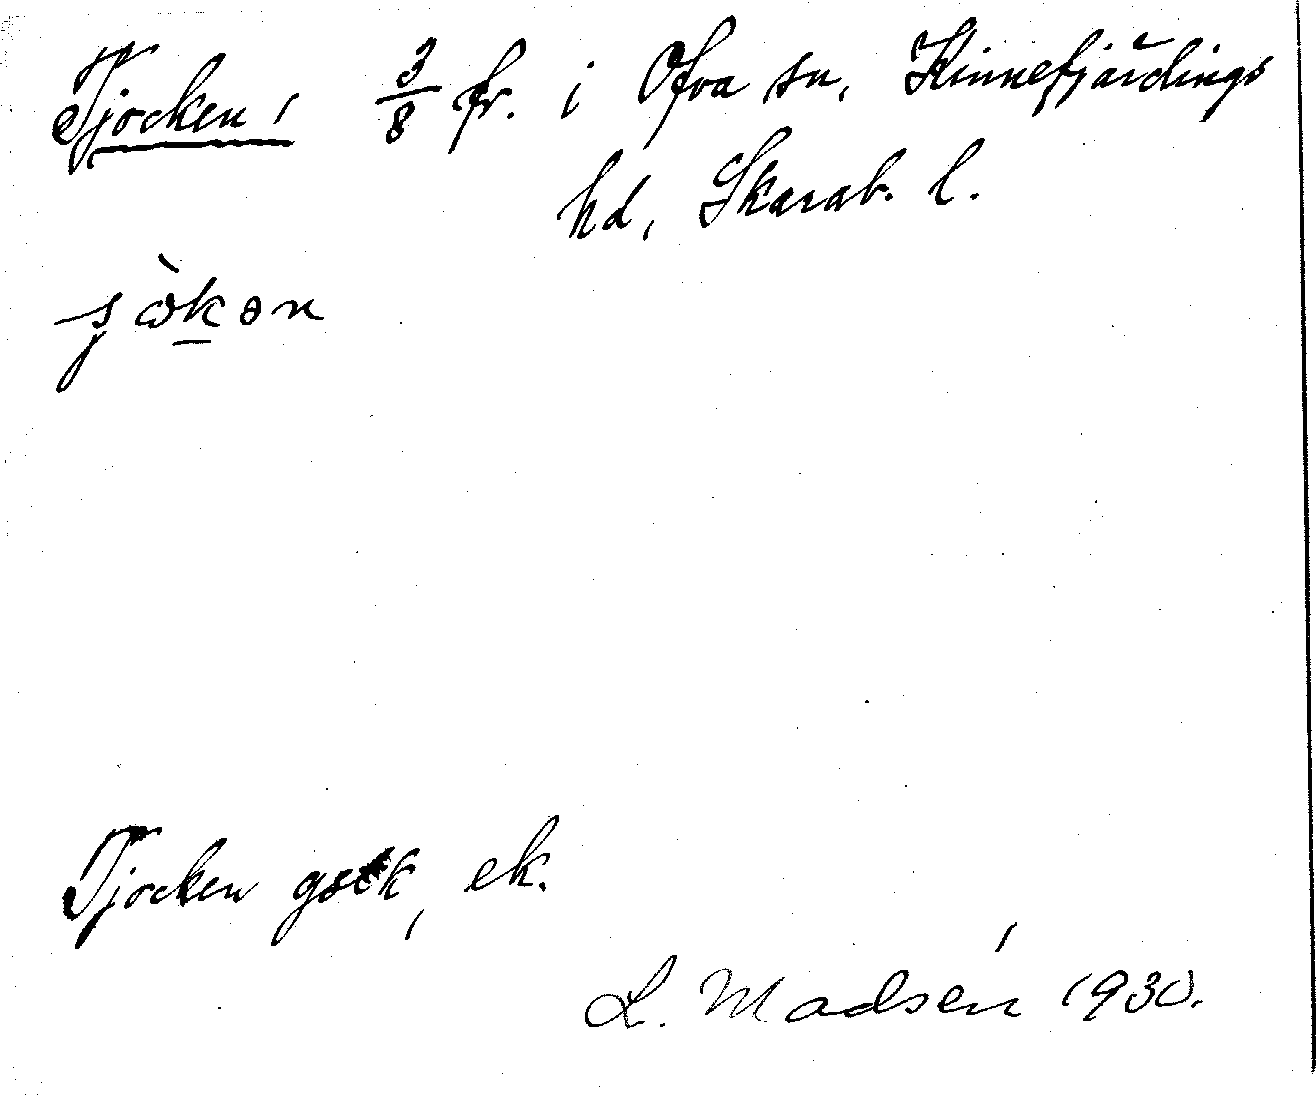 Tjocken, 3/8 fr. i Ofva sn, Kinnefjärdings
hd, Skarab. l.
Tjocken gsek, ek.
L. Madsén 1930.